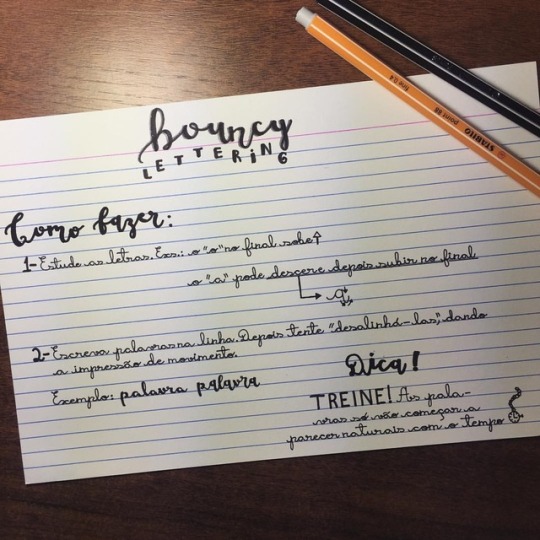 bouncy
LETTERING
Como fazer:
1- Estude as letras. Exs.: o "o" no final sobe↑
o "a" pode descer e depois subir no final
a
2- Escreva palavras na linha. Depois tente "desalinhá-las", dando
a impressão de movimento.
Exemplo: palavra palavra
Dica!
TREINE! As pala-
vras só vão começar a
parecer naturais com o tempo
STABILO point 88